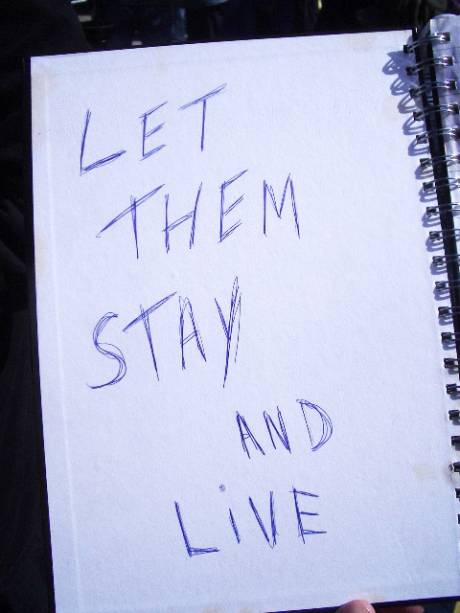 LET
THEM
STAY
AND
LiVE